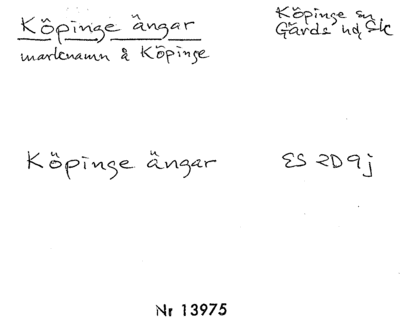 Köpinge ängar
marknamn å Köpinge
Köpinge sn
Gärds hd, Sk
Köpinge ängar ES 2D9j
Nr 13975